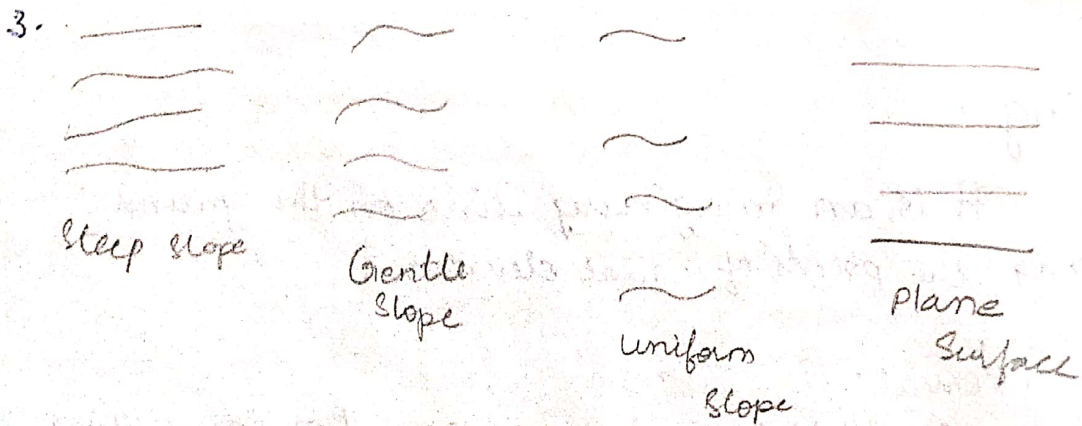 3.
Steep slope
Gentle
Slope
uniform
Slope
Plane
Surface